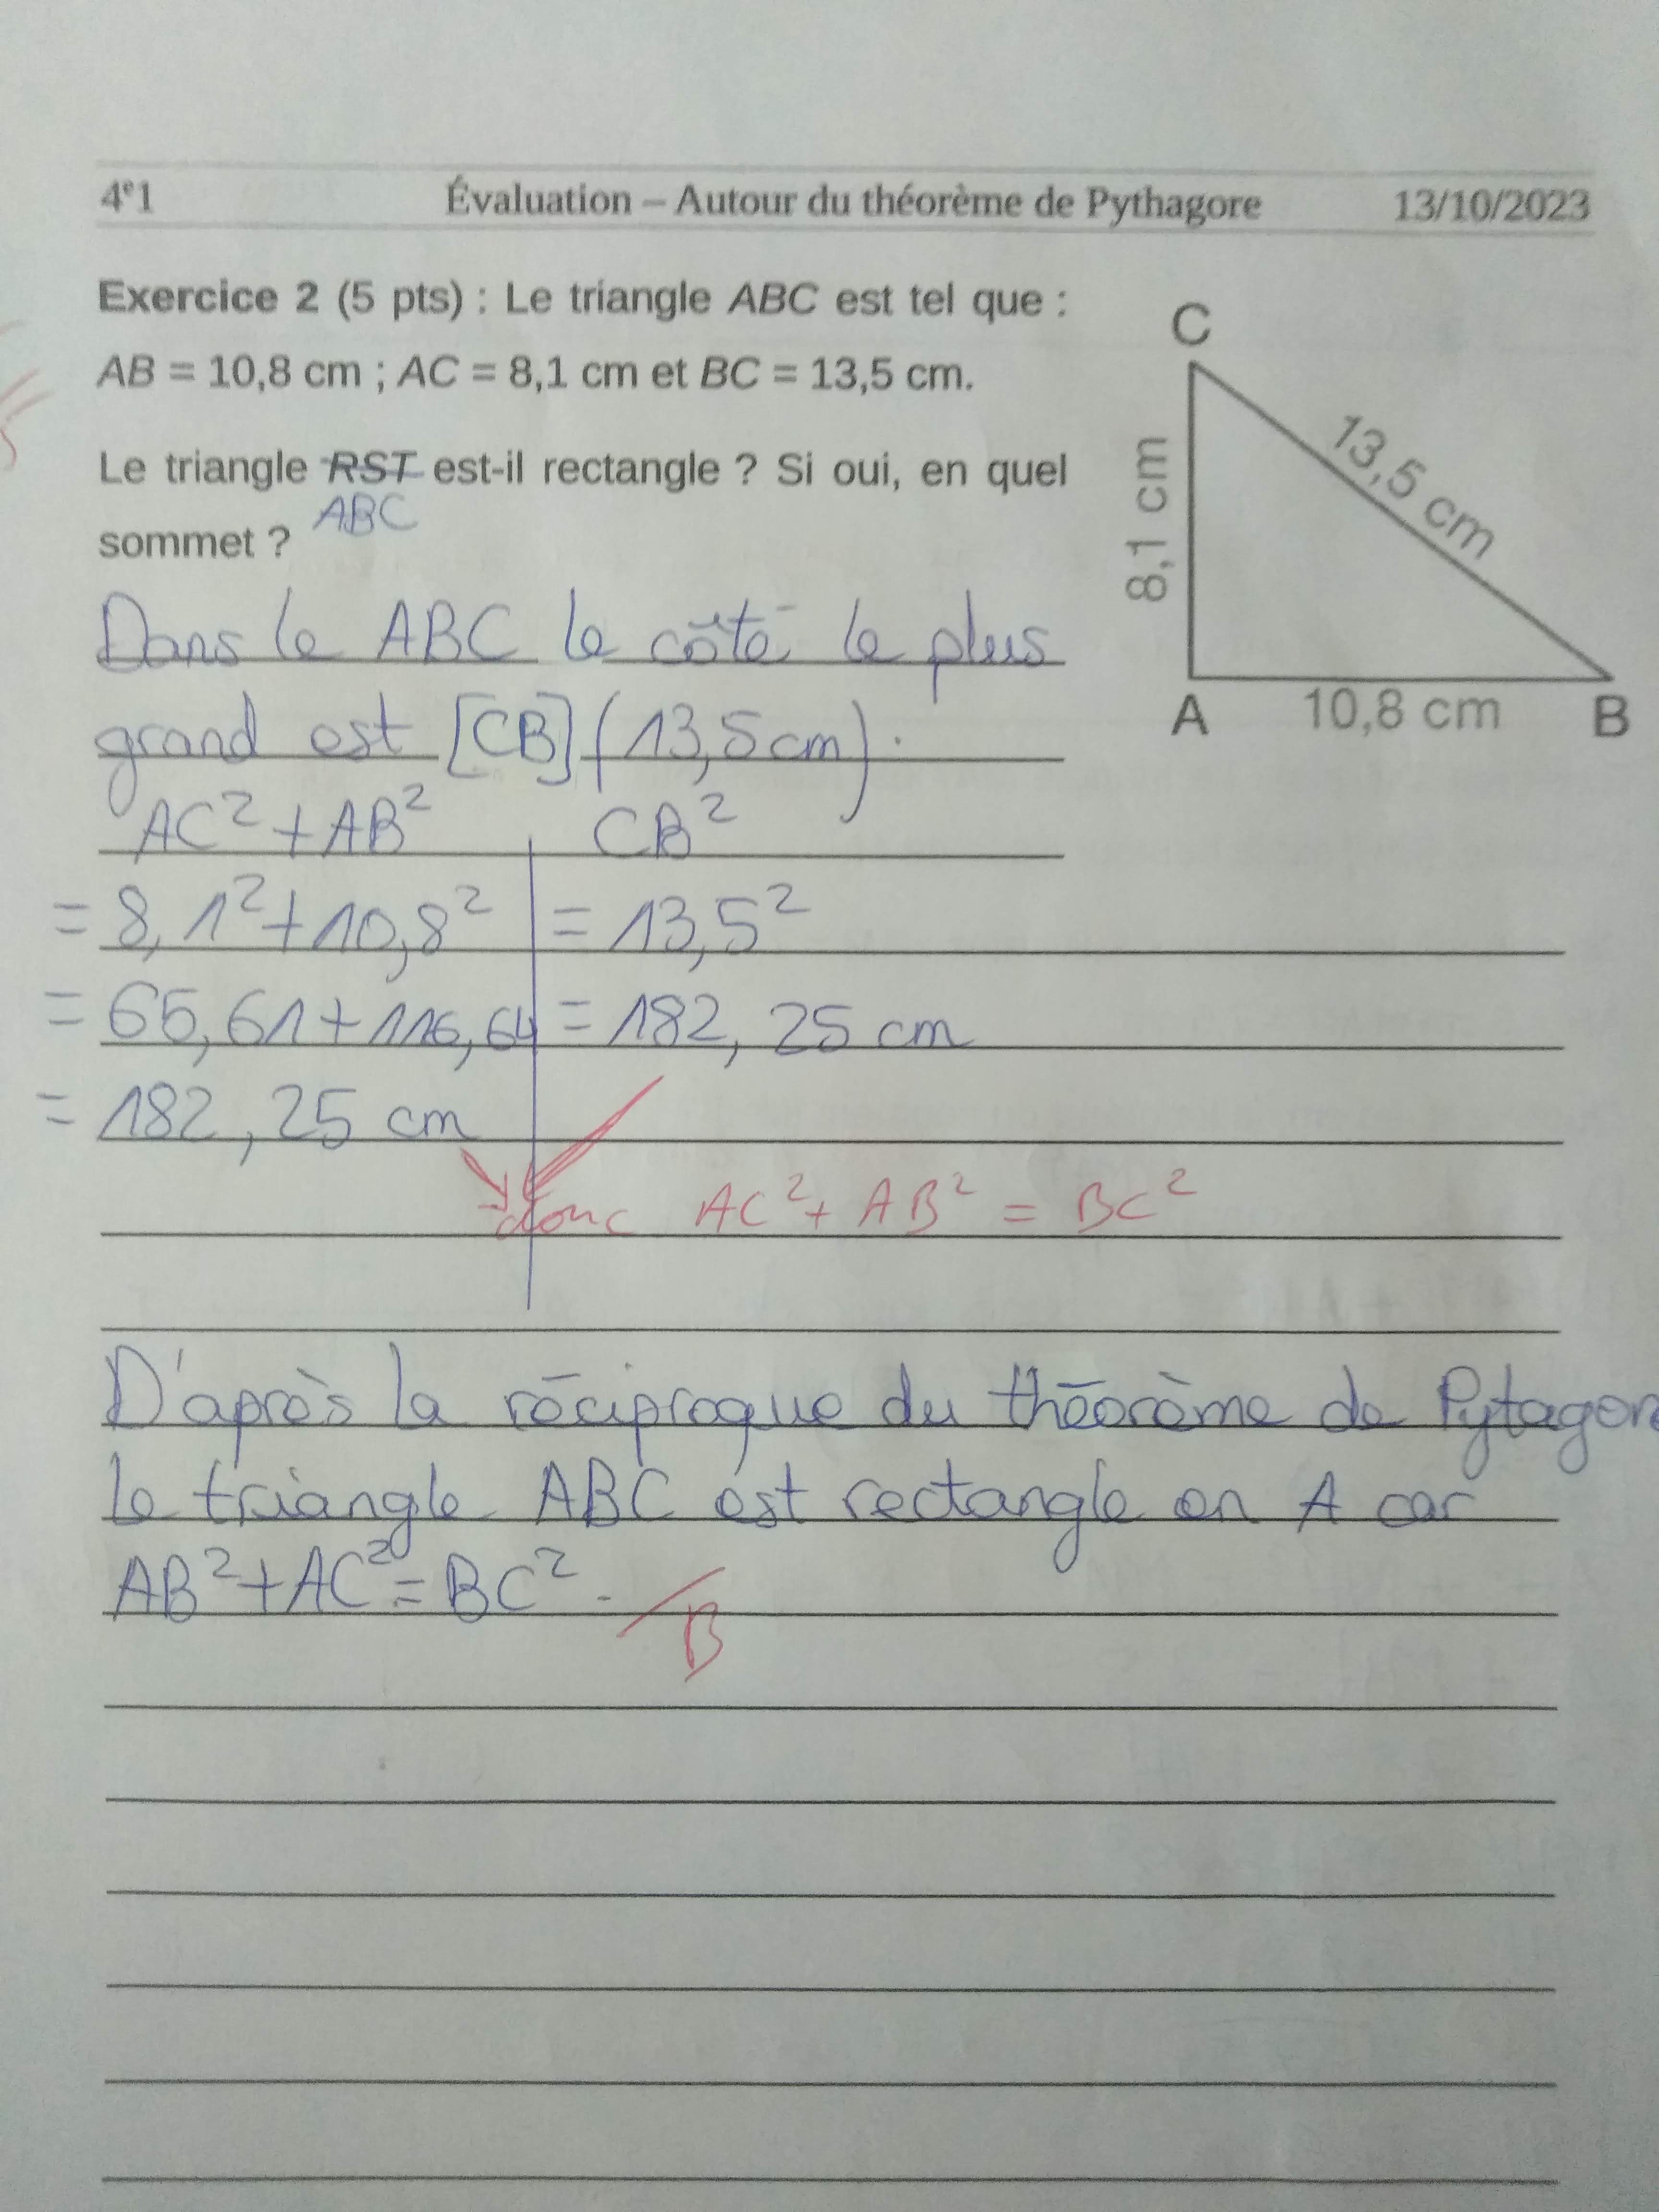 4e1 Évaluation – Autour du théorème de Pythagore 13/10/2023
Exercice 2 (5 pts) : Le triangle ABC est tel que :
AB = 10,8 cm ; AC = 8,1 cm et BC = 13,5 cm.
Le triangle RST est-il rectangle ? Si oui, en quel
ABC
sommet ?
C
8,1 cm
13,5 cm
A 10,8 cm B
Dans le ABC le côté le plus
grand est [CB] (13,5 cm).
AC² + AB² CB²
= 8,1² + 10,8² = 13,5²
= 65,61 + 116,64 = 182,25 cm
= 182,25 cm
donc AC² + AB² = BC²
D'après la réciproque du théorème de Pytagore
le triangle ABC est rectangle en A car
AB² + AC² = BC².
B